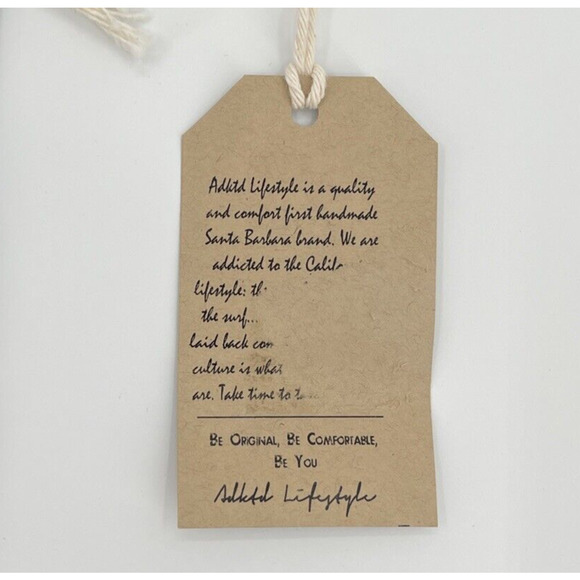 Adktd Lifestyle is a quality
and comfort first handmade
Santa Barbara brand. We are
addicted to the
lifestyle:
the surf...
laid back
culture is
are. Take time to
BE ORIGINAL, BE COMFORTABLE,
BE YOU
Adktd Lifestyle